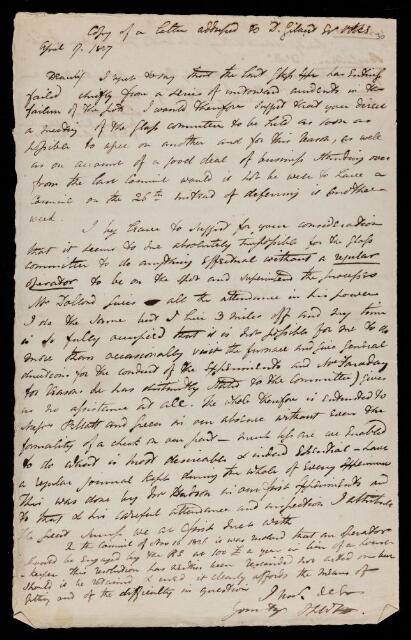 Copy of a Letter addressed to D. Gilbert Esq VPRS
April 17. 1827
Dear Sir, I regret to say that the last Glass Expt has entirely
failed chiefly from a series of untoward accidents in the
failure of the pots. I would therefore suggest that you direct
a meeting of the Glass committee to be held as soon as
possible to agree on another and for this reason, as well
as on account of a good deal of business standing over
from the last Council would it not be well to have a
Council on the 26th instead of deferring it another
week.
I beg leave to suggest for your consideration
that it seems to me absolutely impossible for the Glass
Committee to do anything effectual without a regular
operator to be on the spot and superintend the process
Mr Dollond gives all the attendance in his power
I do the same but I live 3 miles off and my time
is so fully occupied that it is not possible for me to do
more than occasionally visit the furnace and give general
directions for the conduct of the Experiments and Mr Faraday
(for reasons he has stated to the Committee) gives
us no assistance at all. The whole therefore is entrusted to
Messrs Pellatt and Green in our absence without even the
formality of a check on our part – much less are we enabled
to do what is most desirable & indeed essential – have
a regular journal kept during the whole of every experiment
This was done by Mr Hudson in our first experiments and
to that & his careful attendance and inspection I attribute
the great success we at first met with
In the Council of Nov 16 1826 it was resolved that an operator
should be engaged by the RS at 100£ a year in lieu of a
this resolution has neither been rescinded nor acted on but
should be retained & it clearly affords the means of
getting out of the difficulty in question
I am &c
JFWH